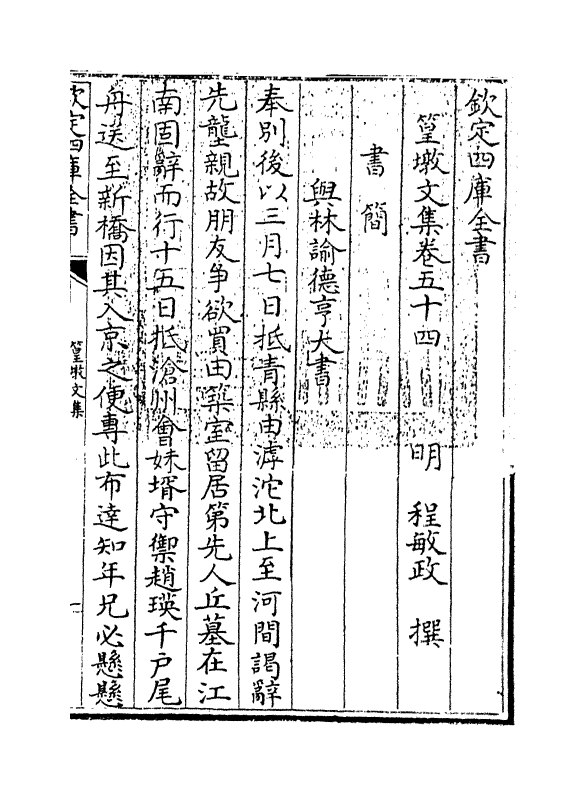 欽定四庫全書
篁墩文集卷五十四
明 程敏政 撰
書簡
與林諭德亨大書
奉別後以三月七日抵青縣由滹沱北上至河間謁辭
先壟親故朋友争欲買田築室留居第先人丘墓在江
南固辭而行十五日抵滄州會妹壻守禦趙瑛千户尾
舟送至新橋因其入京之便専此布達知年兄必懸懸
欽定四庫全書
篁墩文集
一